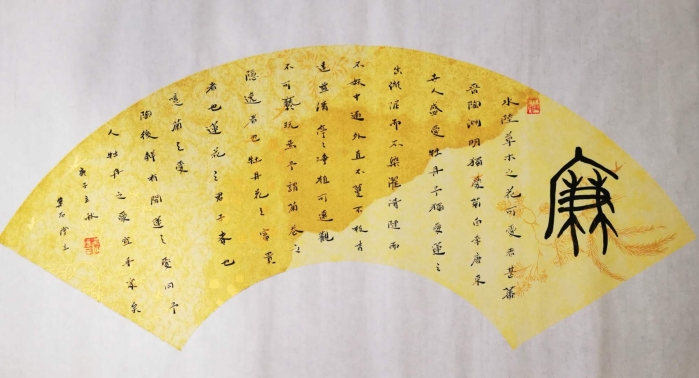 廉
水陸草木之花可愛者甚蕃
晉陶渊明獨愛菊自李唐来
世人盛愛牡丹予獨愛蓮之
出淤泥而不染濯清漣而
不妖中通外直不蔓不枝香
遠益清亭亭净植可遠觀
不可褻玩焉予謂菊花之
隱逸者也牡丹花之富貴
者也蓮花之君子者也
噫菊之愛
陶後鮮有聞蓮之愛同予
人牡丹之愛宜乎衆矣
庚子立秋